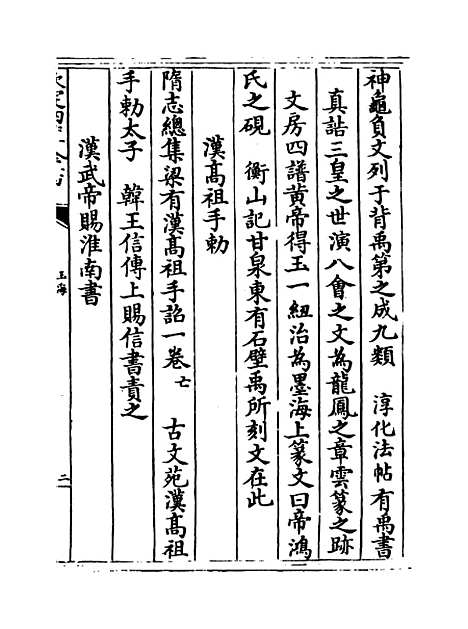 神龜負文列于背禹第之成九類　淳化法帖有禹書
真誥三皇之世演八會之文為龍鳳之章雲篆之跡
文房四譜黄帝得玉一紐治為墨海上篆文曰帝鴻
氏之硯　衡山記甘泉東有石壁禹所刻文在此
漢髙祖手勅
隋志總集梁有漢髙祖手詔一卷亡　古文苑漢髙祖
手勅太子　韓王信傳上賜信書責之
漢武帝賜淮南書
玉海
二